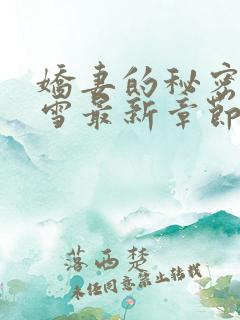 嬌妻的秘密
雪最新章節
落西楚
未任同意禁止转载